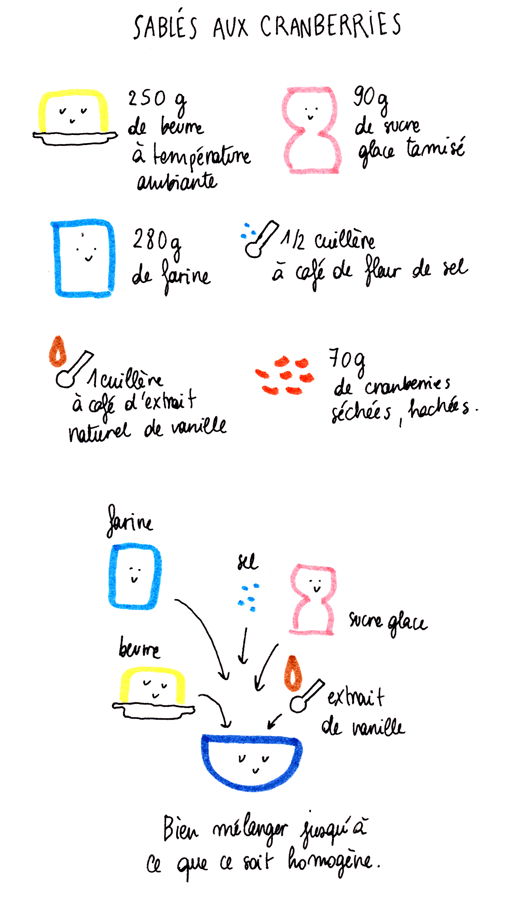 SABLÉS AUX CRANBERRIES
250 g
de beurre
à température
ambiante
90g
de sucre
glace tamisé
280g
de farine
1/2 cuillère
à café de fleur de sel
1 cuillère
à café d'extrait
naturel de vanille
70g
de cranberries
séchées, hachées.
farine
sel
sucre glace
beurre
extrait
de vanille
Bien mélanger jusqu'à
ce que ce soit homogène.